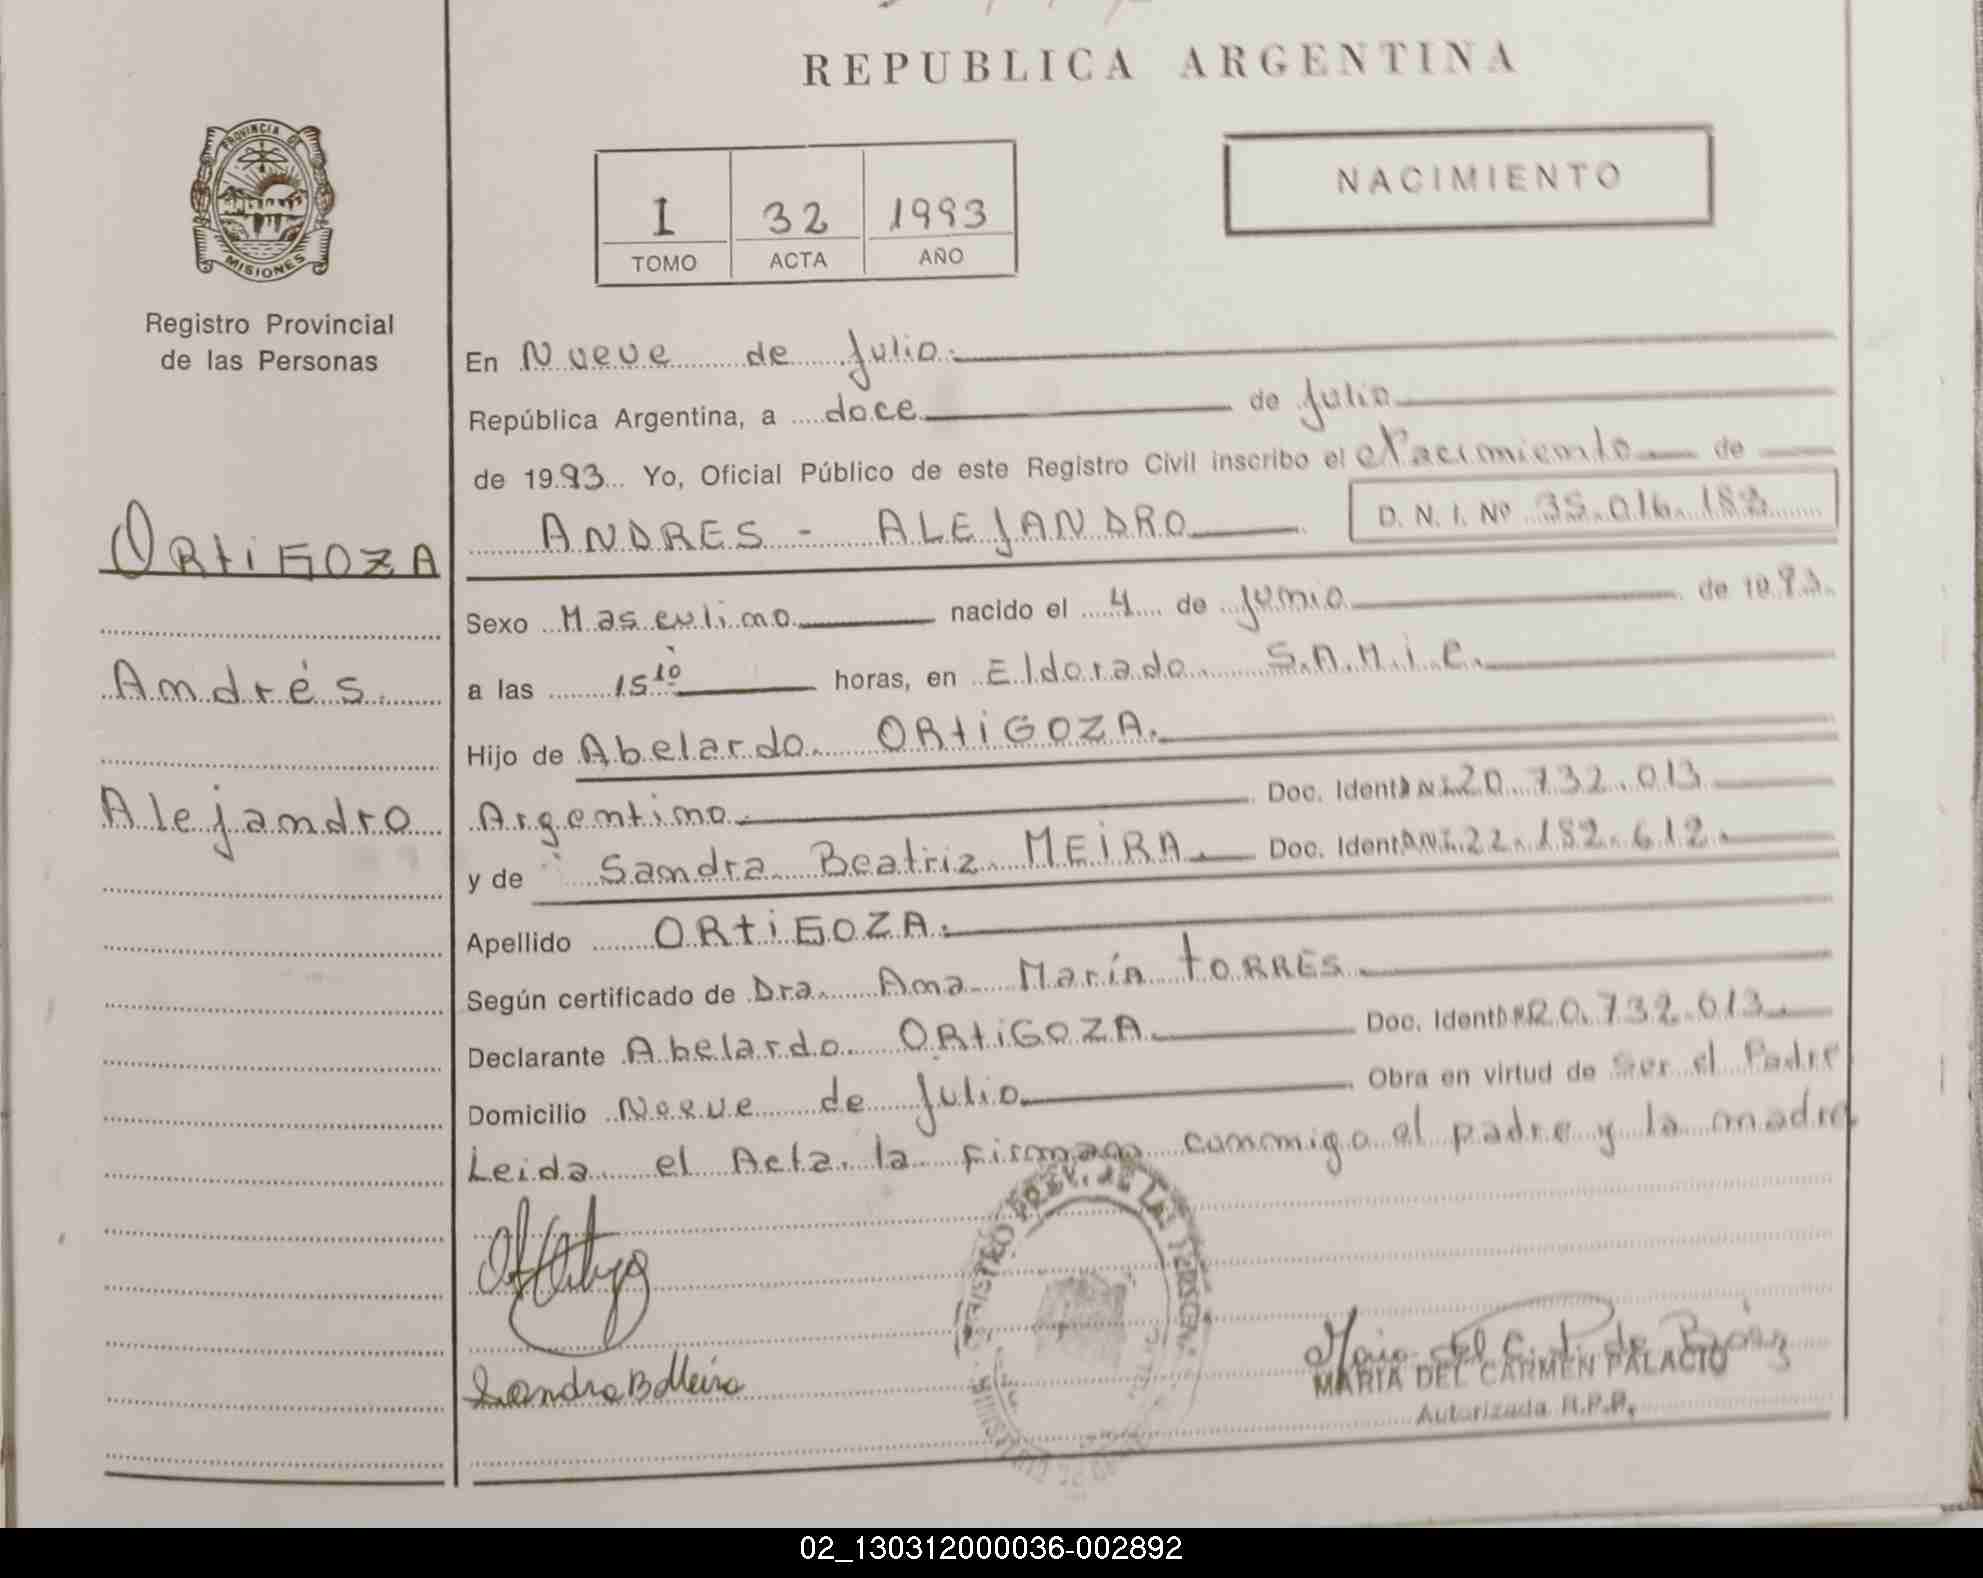 REPUBLICA ARGENTINA
PROVINCIA DE
MISIONES
Registro Provincial
de las Personas
I 32 1993
TOMO ACTA AÑO
NACIMIENTO
ORtiGOZA
Andrés
Alejandro
En Nueve de Julio.
República Argentina, a doce de Julio
de 1993 Yo, Oficial Público de este Registro Civil inscribo el Nacimiento de
ANDRES - ALEJANDRO D. N. I. Nº 35.016.182
Sexo Masculino nacido el 4 de Junio de 1993.
a las 15 10 horas, en Eldorado S.A.M.i.C.
Hijo de Abelardo ORtiGOZA.
Argentino Doc. Ident 20.732.013
y de Sandra Beatriz MEiRA Doc. Ident 22.182.612.
Apellido ORtiGOZA.
Según certificado de Dra. Ana María tORRES
Declarante Abelardo ORtiGOZA Doc. Ident 20.732.013
Domicilio Nueve de Julio Obra en virtud de Ser el Padre
Leida el Acta la firman conmigo el padre y la madre
Sandra B Meira
MARIA DEL CARMEN PALACIO
Autorizada R.P.P.
02_130312000036-002892